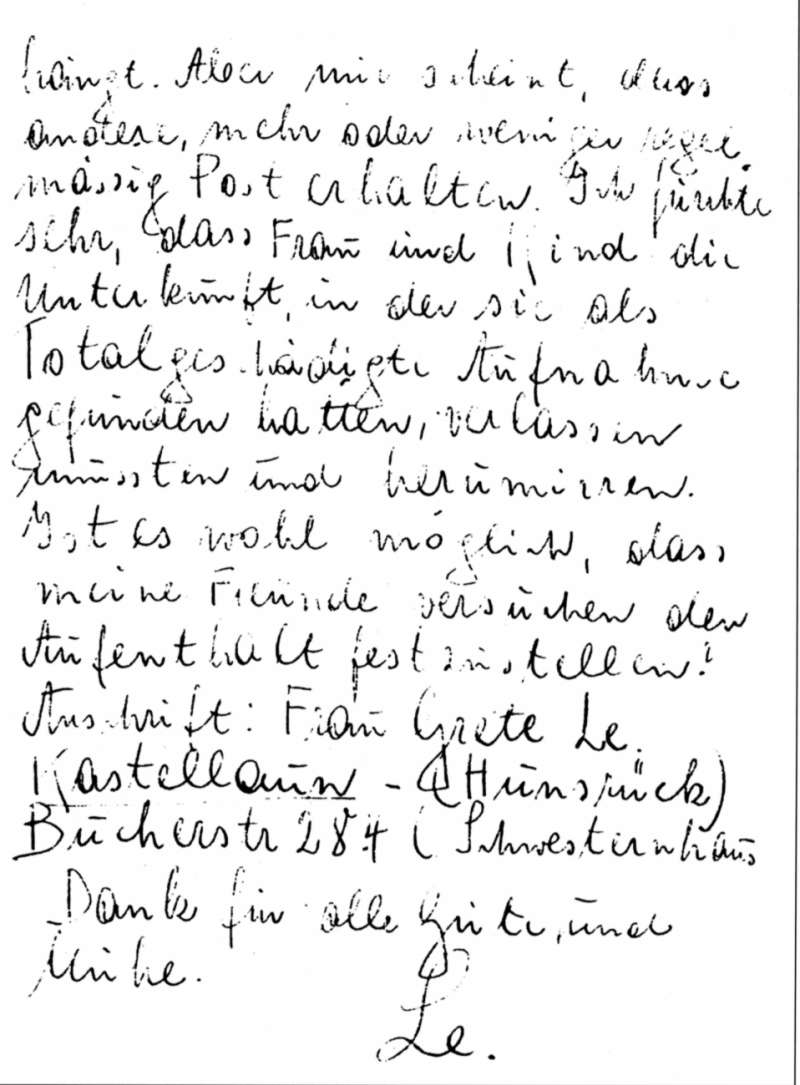 hängt. Aber mir scheint, dass
andere, mehr oder weniger regel-
mässig Post erhalten. Ich fürchte
sehr, dass Frau und Kind die
Unterkunft, in der sie als
Totalgeschädigte Aufnahme
gefunden hatten, verlassen
mussten und herumirren.
Ist es wohl möglich, dass
meine Freunde versuchen den
Aufenthalt festzustellen?
Anschrift: Frau Grete Le.
Kastellaun - (Hunsrück)
Bucherstr 284 (Schwesternhaus
Dank für alle Güte, und
Mühe.
Le.